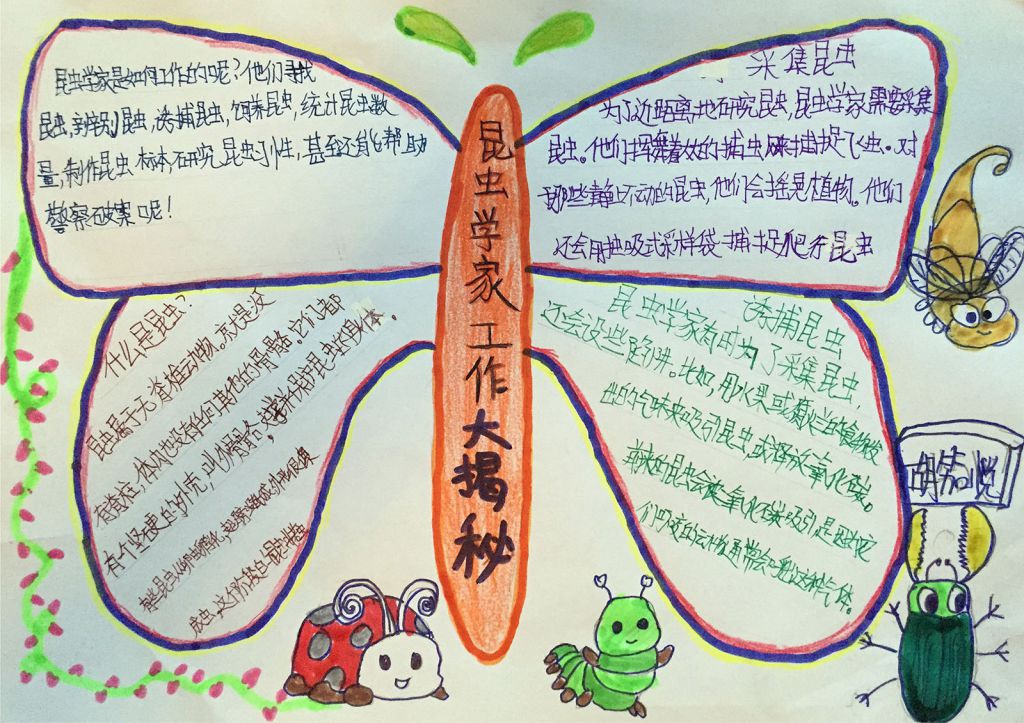 昆虫学家工作大揭秘
昆虫学家是如何工作的呢?他们寻找
昆虫,辨别昆虫,诱捕昆虫,饲养昆虫,统计昆虫数
量,制作昆虫标本,研究昆虫习性,甚至还能帮助
警察破案呢!
采集昆虫
为了近距离地研究昆虫,昆虫学家需要采集
昆虫。他们挥舞着的捕虫网来捕捉飞虫。对
那些静止不动的昆虫,他们会摇晃植物。他们
还会用抽吸式采样袋捕捉爬行昆虫
什么是昆虫?
昆虫属于无脊椎动物。亦是没
有脊柱,体内也没有任何其他的骨骼。它们都
有个坚硬的外壳,叫外骨骼,支撑并保护昆虫的身体。
诱捕昆虫
昆虫学家有时为了采集昆虫,
还会设些陷阱。比如,用水果或腐烂的食物发
出的气味来吸引昆虫,或释放二氧化碳。
的昆虫会被二氧化碳吸引是因为它
们叮咬的动物通常会呼出这种气体。